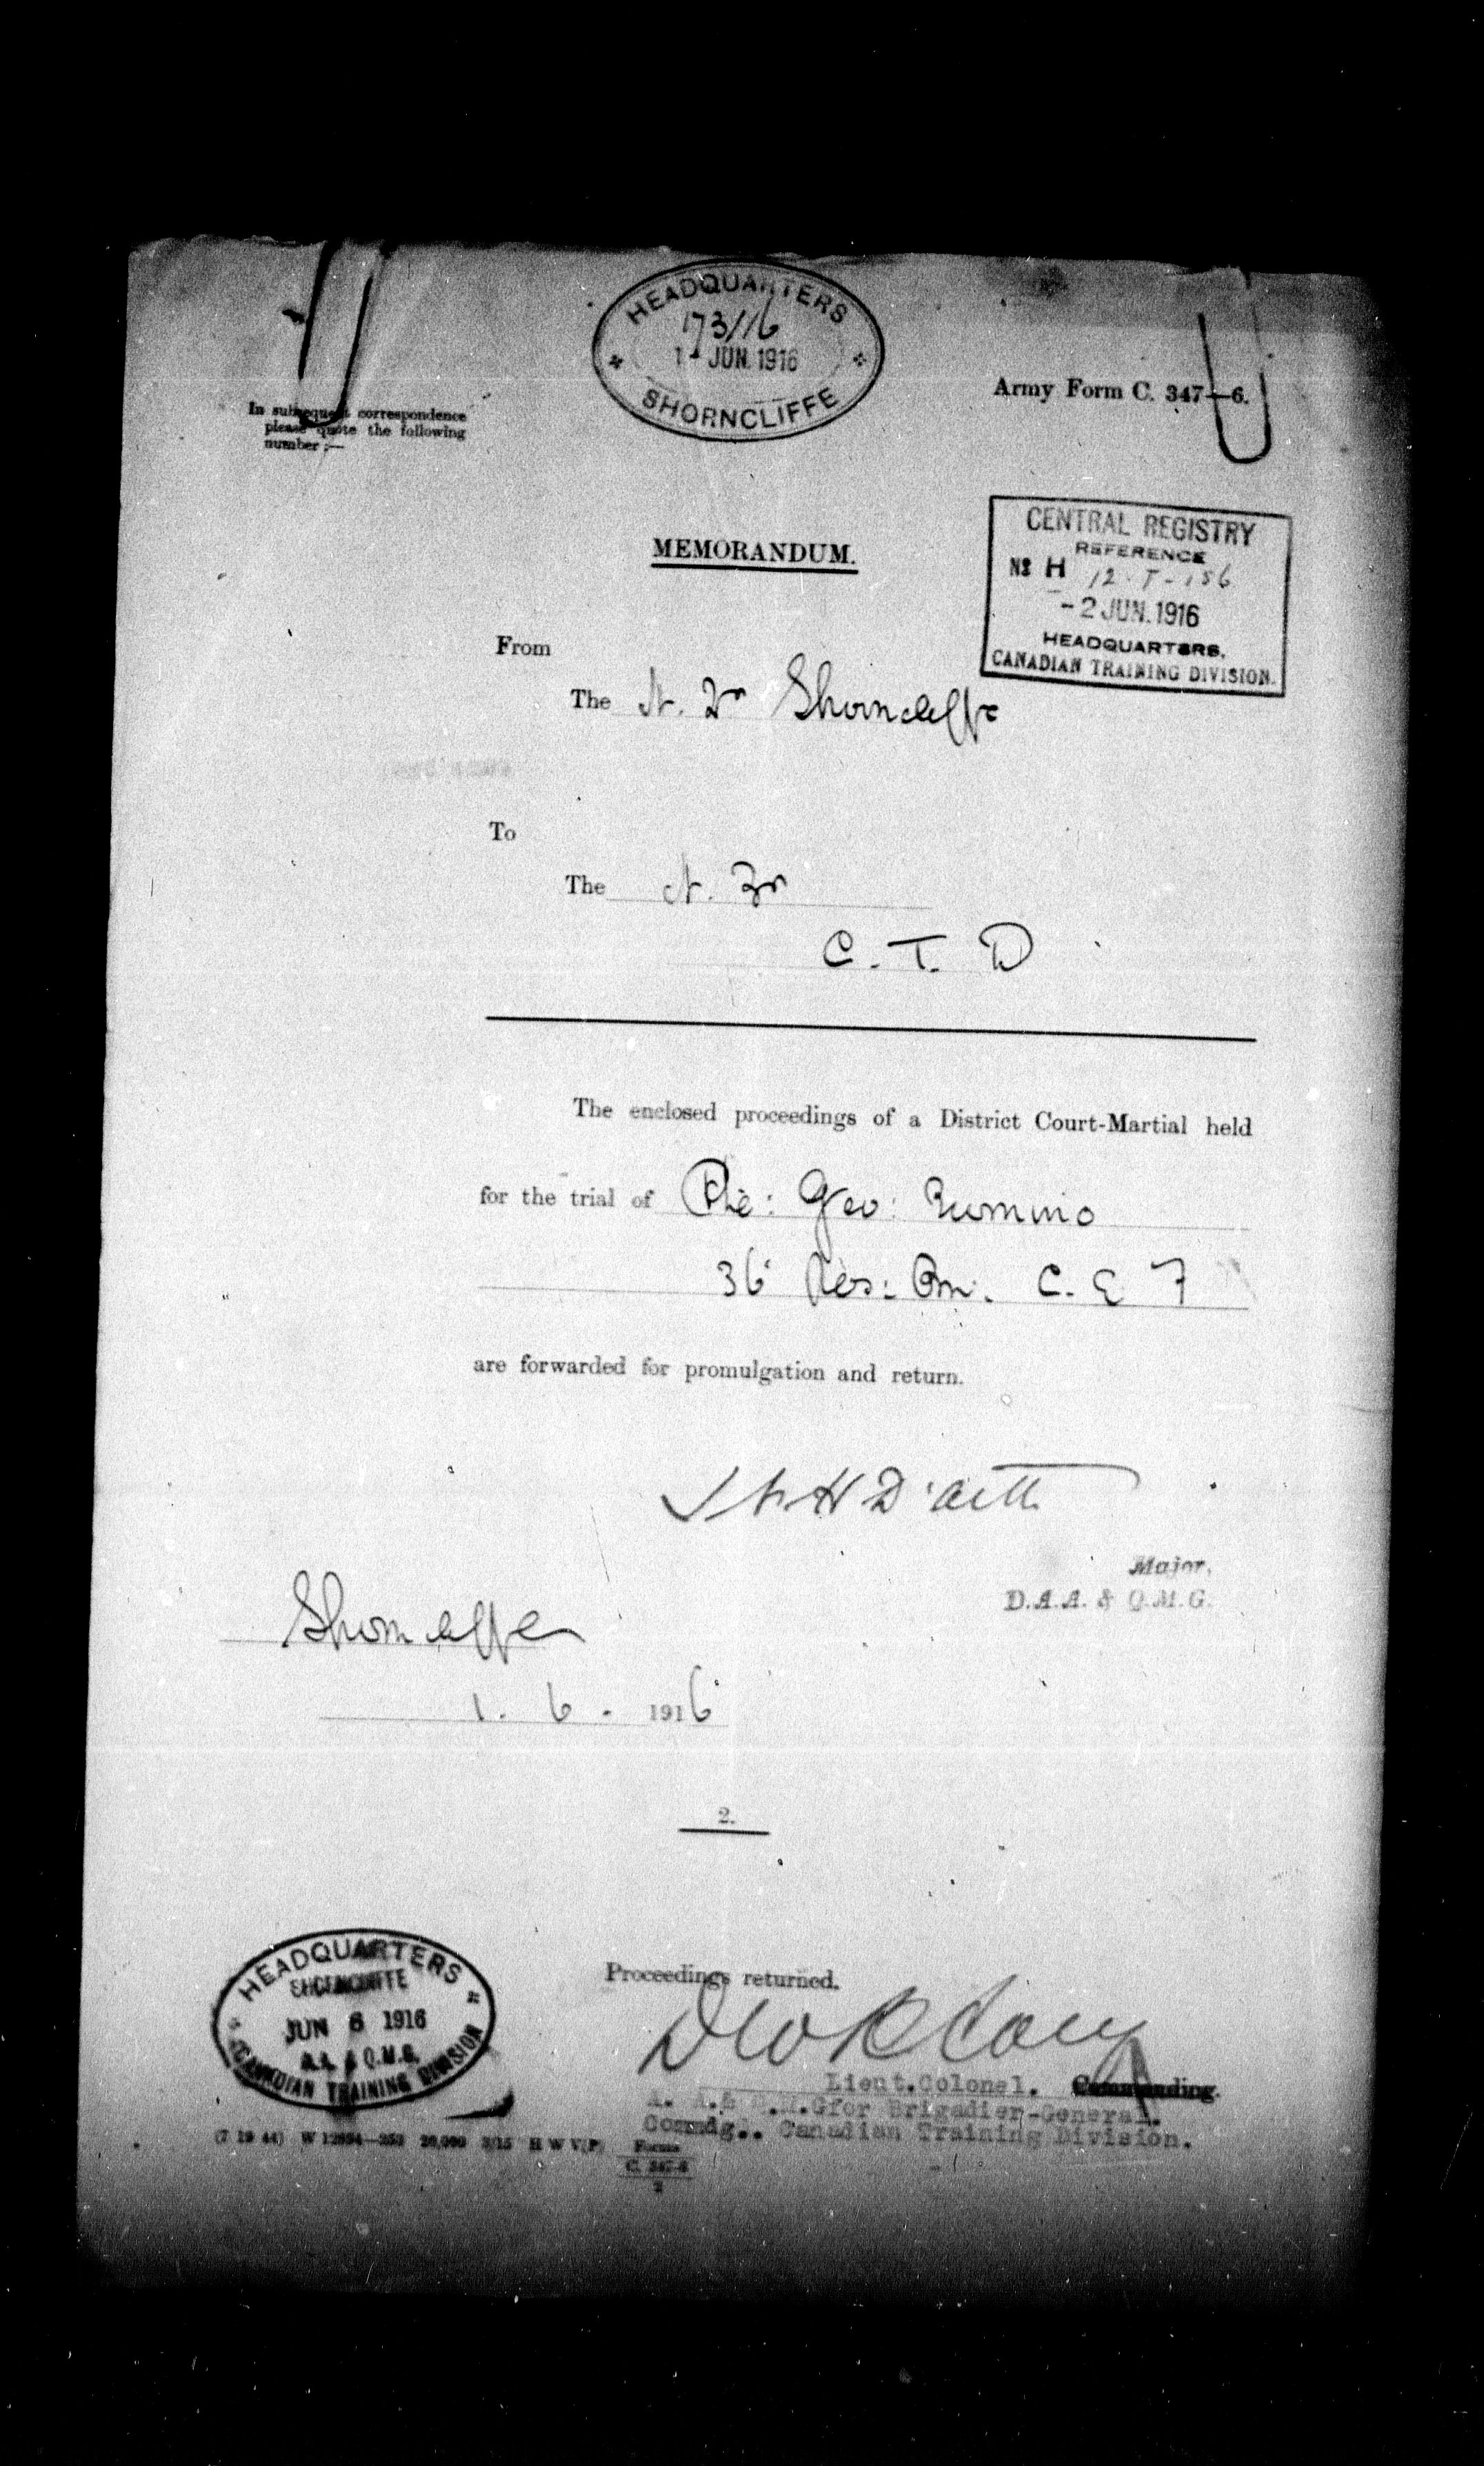 HEADQUARTERS
173/16
1 - JUN. 1916
SHORNCLIFFE
Army Form C. 347—6.
In subsequent correspondence
please quote the following
number :—
CENTRAL REGISTRY
REFERENCE
No H 12-T-156
- 2 JUN. 1916
HEADQUARTERS,
CANADIAN TRAINING DIVISION.
MEMORANDUM.
From
The Shorncliffe
To
The
C. T. D
The enclosed proceedings of a District Court-Martial held
for the trial of Pte: Geo:
36 Res: Bn. C. E F
are forwarded for promulgation and return.
Major,
D.A.A. & Q.M.G.
Shorncliffe
1. 6. 1916
2.
HEADQUARTERS
SHORNCLIFFE
JUN 6 1916
A.A. & Q.M.G.
CANADIAN TRAINING DIVISION
Proceedings returned.
Lieut.Colonel. Commanding.
A. A.& Q.M.G for Brigadier-General.
Commdg.. Canadian Training Division.
(7 19 44) H W V(P) Forms
C. 347-6